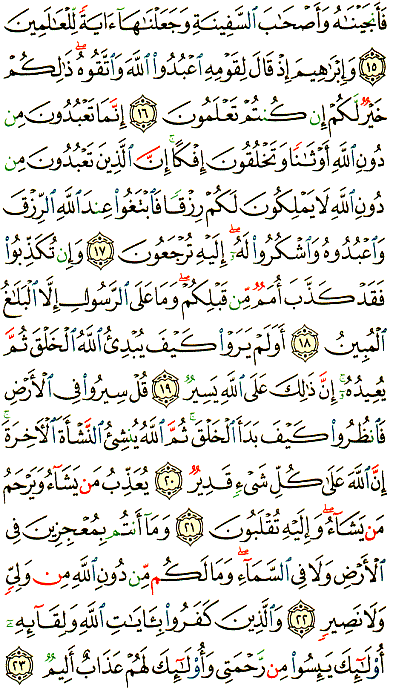 فَأَنجَيْنَٰهُ وَأَصْحَٰبَ ٱلسَّفِينَةِ وَجَعَلْنَٰهَآ ءَايَةً لِّلْعَٰلَمِينَ
﴿١٥﴾ وَإِبْرَٰهِيمَ إِذْ قَالَ لِقَوْمِهِ ٱعْبُدُوا۟ ٱللَّهَ وَٱتَّقُوهُ ۖ ذَٰلِكُمْ
خَيْرٌ لَّكُمْ إِن كُنتُمْ تَعْلَمُونَ ﴿١٦﴾ إِنَّمَا تَعْبُدُونَ مِن
دُونِ ٱللَّهِ أَوْثَٰنًا وَتَخْلُقُونَ إِفْكًا ۚ إِنَّ ٱلَّذِينَ تَعْبُدُونَ مِن
دُونِ ٱللَّهِ لَا يَمْلِكُونَ لَكُمْ رِزْقًا فَٱبْتَغُوا۟ عِندَ ٱللَّهِ ٱلرِّزْقَ
وَٱعْبُدُوهُ وَٱشْكُرُوا۟ لَهُۥٓ ۖ إِلَيْهِ تُرْجَعُونَ ﴿١٧﴾ وَإِن تُكَذِّبُوا۟
فَقَدْ كَذَّبَ أُمَمٌ مِّن قَبْلِكُمْ ۖ وَمَا عَلَى ٱلرَّسُولِ إِلَّا ٱلْبَلَٰغُ
ٱلْمُبِينُ ﴿١٨﴾ أَوَلَمْ يَرَوْا۟ كَيْفَ يُبْدِئُ ٱللَّهُ ٱلْخَلْقَ ثُمَّ
يُعِيدُهُۥٓ ۚ إِنَّ ذَٰلِكَ عَلَى ٱللَّهِ يَسِيرٌ ﴿١٩﴾ قُلْ سِيرُوا۟ فِى ٱلْأَرْضِ
فَٱنظُرُوا۟ كَيْفَ بَدَأَ ٱلْخَلْقَ ۚ ثُمَّ ٱللَّهُ يُنشِئُ ٱلنَّشْأَةَ ٱلْءَاخِرَةَ ۚ
إِنَّ ٱللَّهَ عَلَىٰ كُلِّ شَىْءٍ قَدِيرٌ ﴿٢٠﴾ يُعَذِّبُ مَن يَشَآءُ وَيَرْحَمُ
مَن يَشَآءُ ۖ وَإِلَيْهِ تُقْلَبُونَ ﴿٢١﴾ وَمَآ أَنتُم بِمُعْجِزِينَ فِى
ٱلْأَرْضِ وَلَا فِى ٱلسَّمَآءِ ۖ وَمَا لَكُم مِّن دُونِ ٱللَّهِ مِن وَلِىٍّ
وَلَا نَصِيرٍ ﴿٢٢﴾ وَٱلَّذِينَ كَفَرُوا۟ بِـَٔايَٰتِ ٱللَّهِ وَلِقَآئِهِۦٓ
أُو۟لَٰٓئِكَ يَئِسُوا۟ مِن رَّحْمَتِى وَأُو۟لَٰٓئِكَ لَهُمْ عَذَابٌ أَلِيمٌ ﴿٢٣﴾